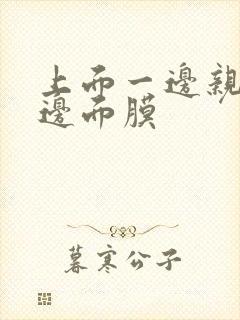 上面一邊親
邊面膜
暮寒公子